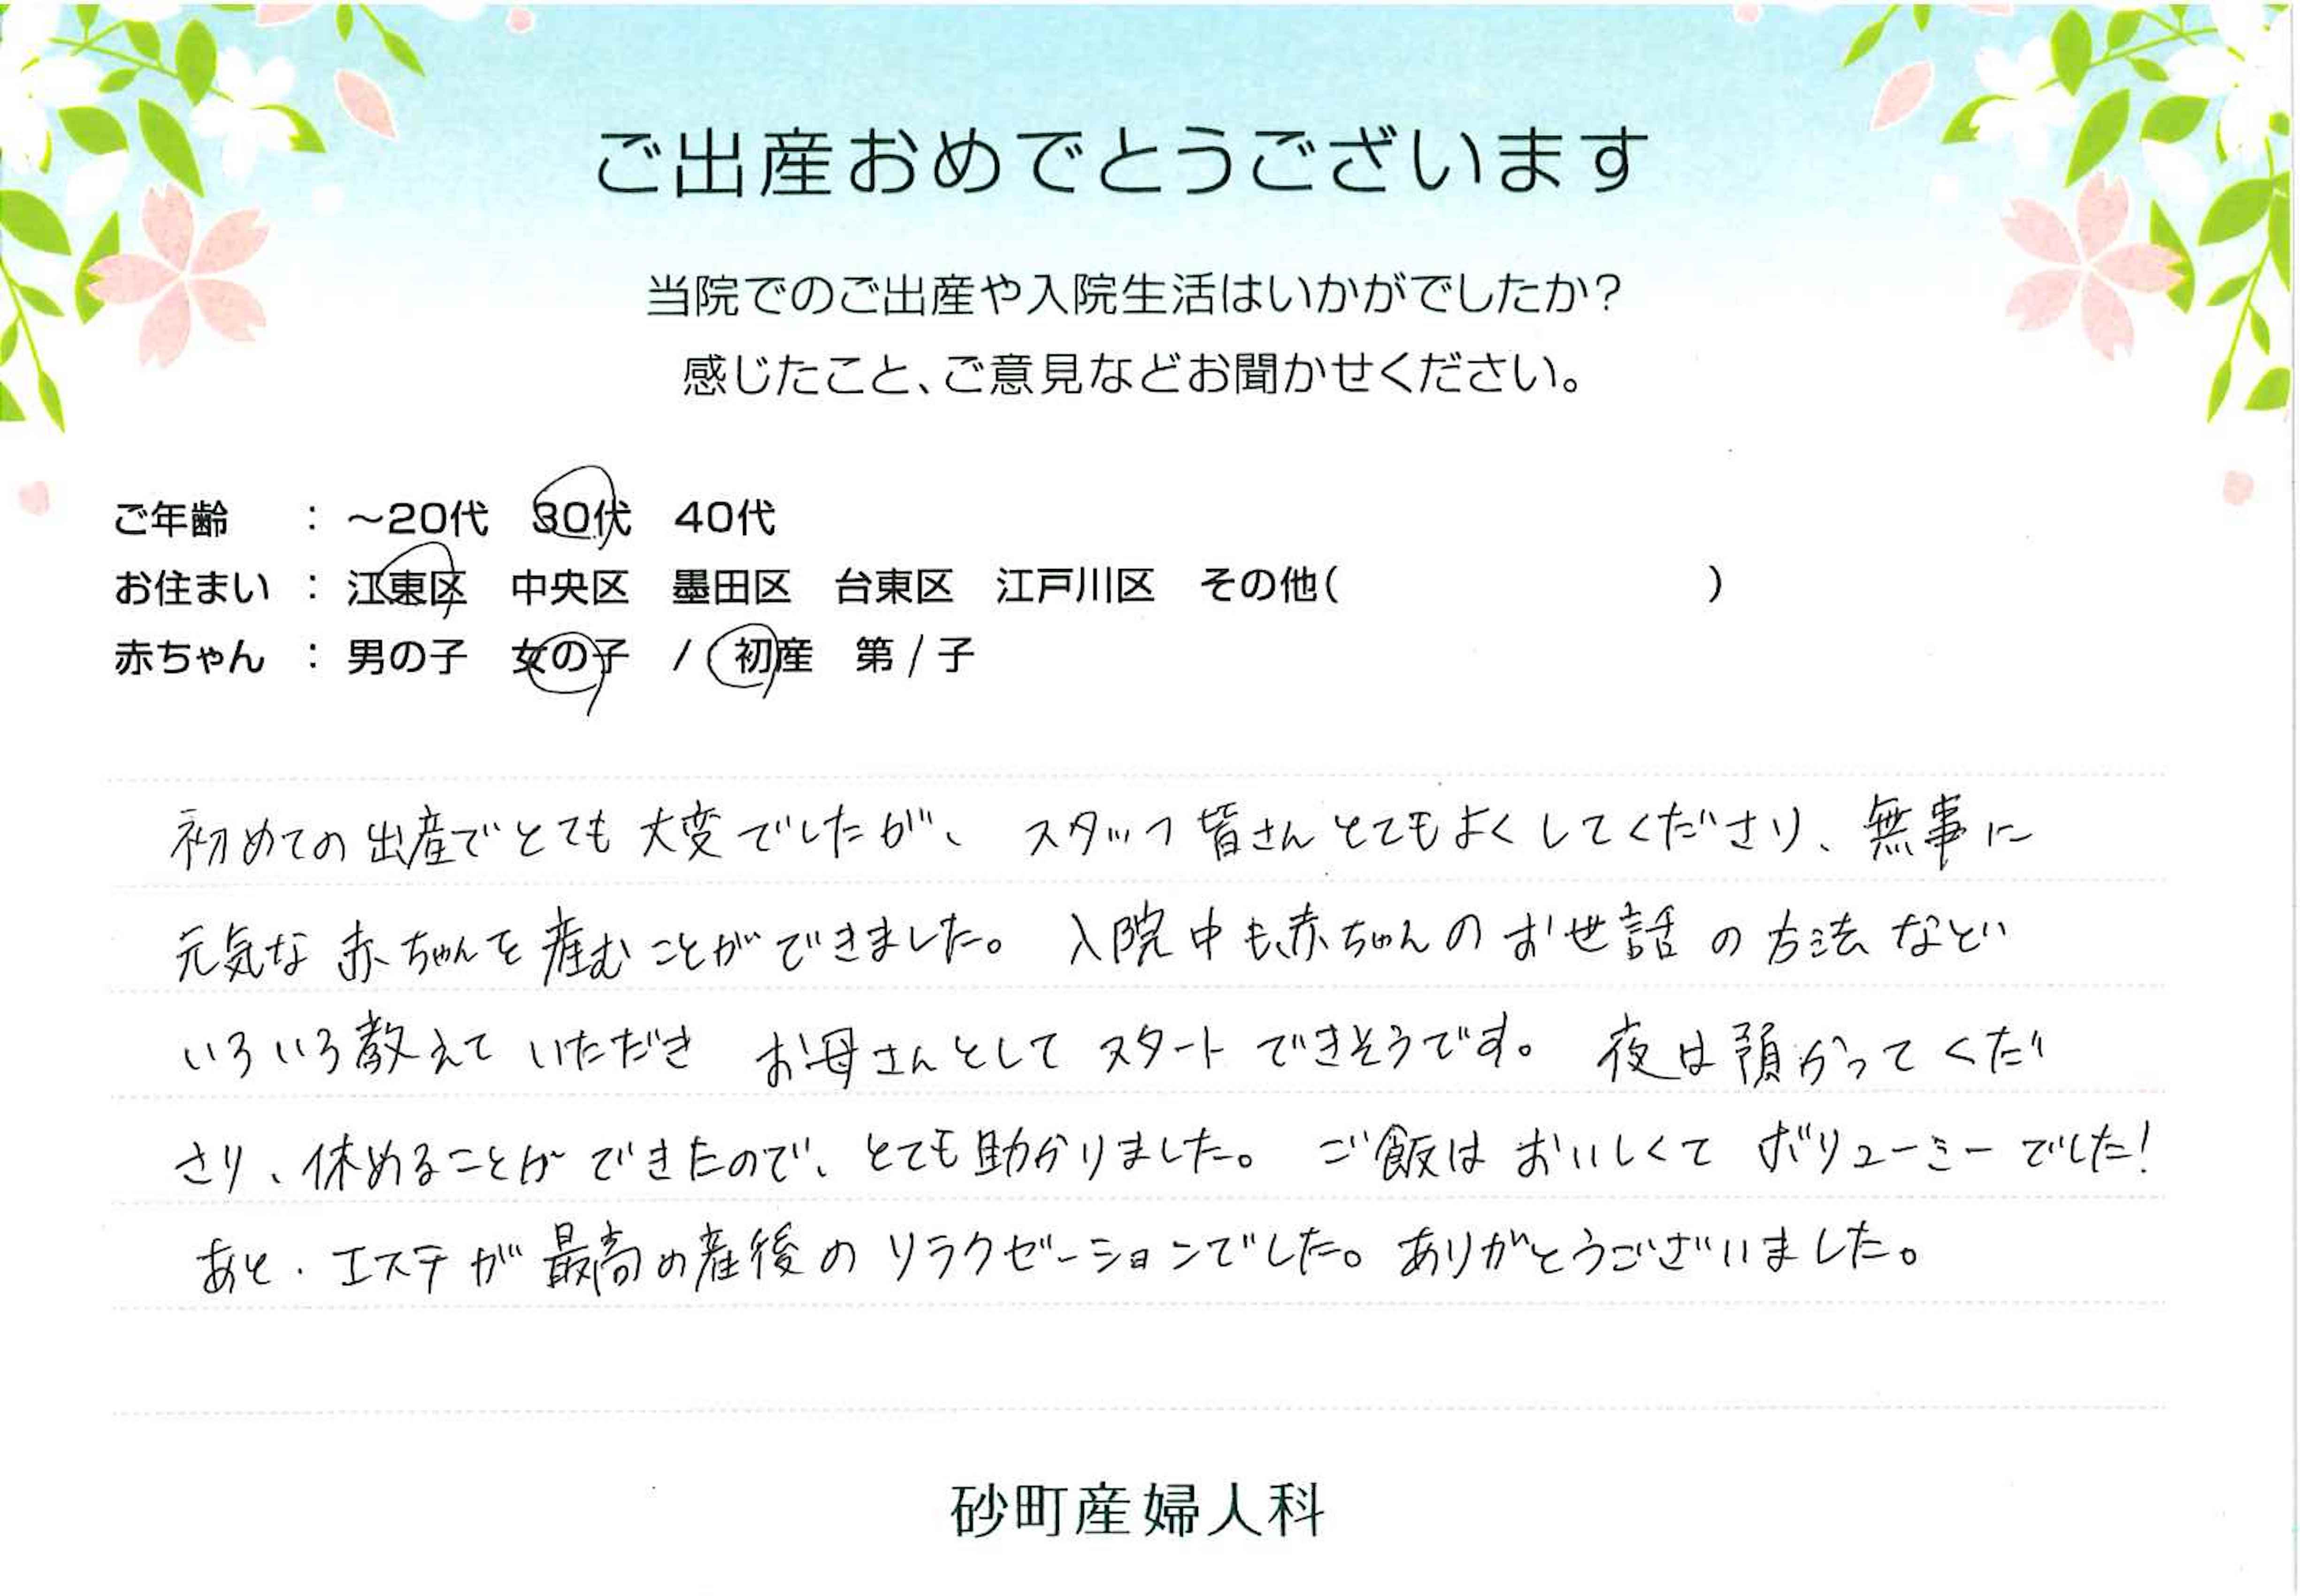 ご出産おめでとうございます
当院でのご出産や入院生活はいかがでしたか？
感じたこと、ご意見などお聞かせください。
ご年齢 ： ～20代 30代 40代
お住まい ： 江東区 中央区 墨田区 台東区 江戸川区 その他( )
赤ちゃん ： 男の子 女の子 / 初産 第1子
初めての出産でとても大変でしたが、スタッフ皆さんとてもよくしてくださり、無事に
元気な赤ちゃんを産むことができました。入院中も赤ちゃんのお世話の方法など
いろいろ教えていただき お母さんとしてスタートできそうです。夜は預かってくだ
さり、休めることができたので、とても助かりました。ご飯はおいしくてボリューミーでした！
あと、エステが最高の産後のリラクゼーションでした。ありがとうございました。
砂町産婦人科